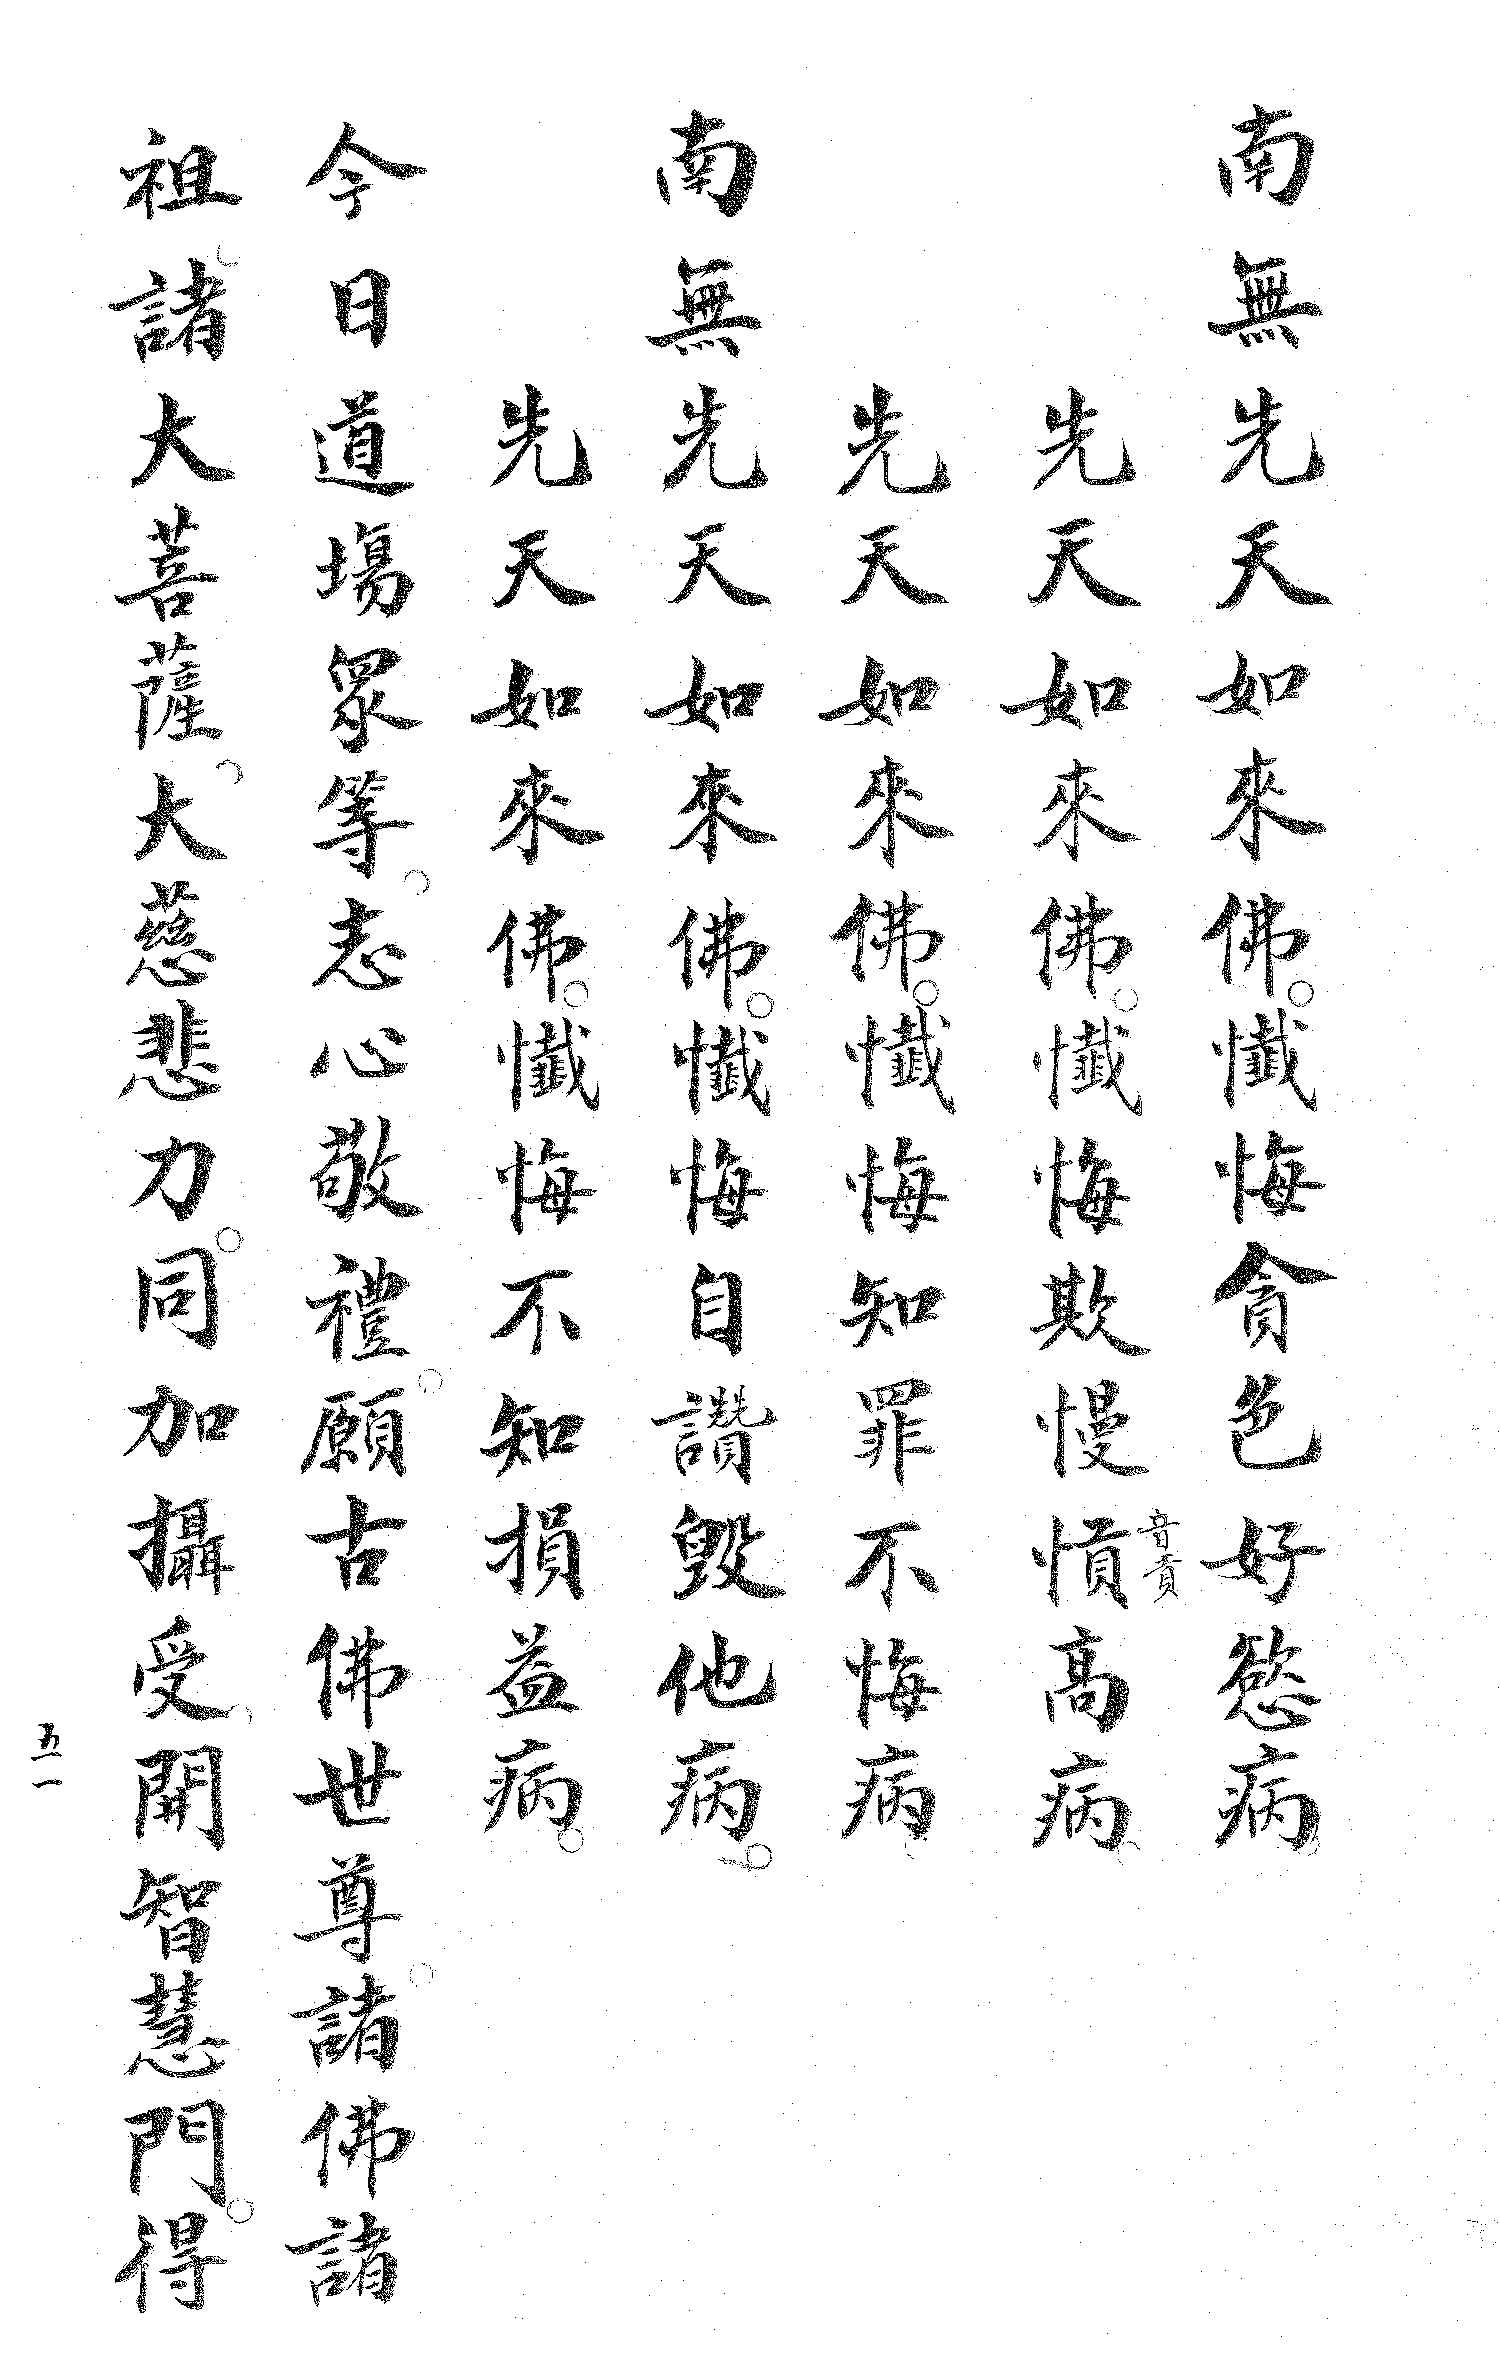 南無先天如來佛。懺悔貪色好慾病。
先天如來佛。懺悔欺慢愩高病。
音貢
先天如來佛。懺悔知罪不悔病。
南無先天如來佛。懺悔自讚毀他病。
先天如來佛。懺悔不知損益病。
今日道場眾等。志心敬禮。願古佛世尊。諸佛諸
祖。諸大菩薩。大慈悲力。同加攝受。開智慧門。得
五一